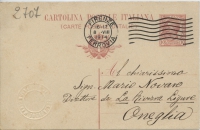 2707
CARTOLINA POSTALE ITALIANA
(CARTE
FIRENZE
FERROVIA
Al chiarissimo
Sig. Mario Novaro
Direttore de La Riviera Ligure
Oneglia